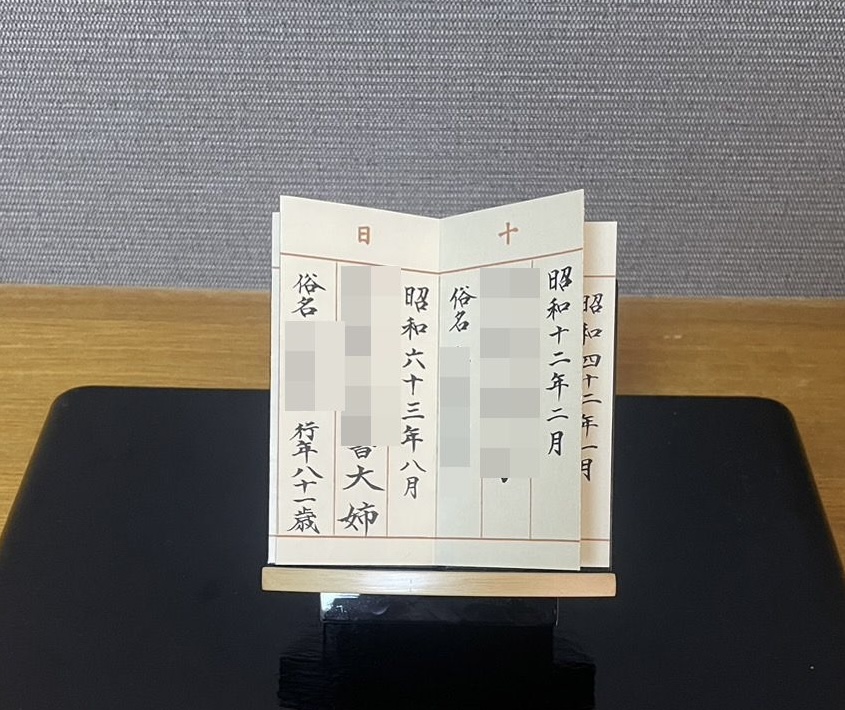 十日
昭和四十二年一月
昭和十二年二月
俗名
昭和六十三年八月
大姉
俗名
行年八十一歳